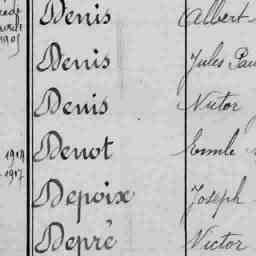 Denis Albert
1905 Denis Jules Pau
Denis Victor
1914 Denot Emile
1917 Depoix Joseph
Depré Victor